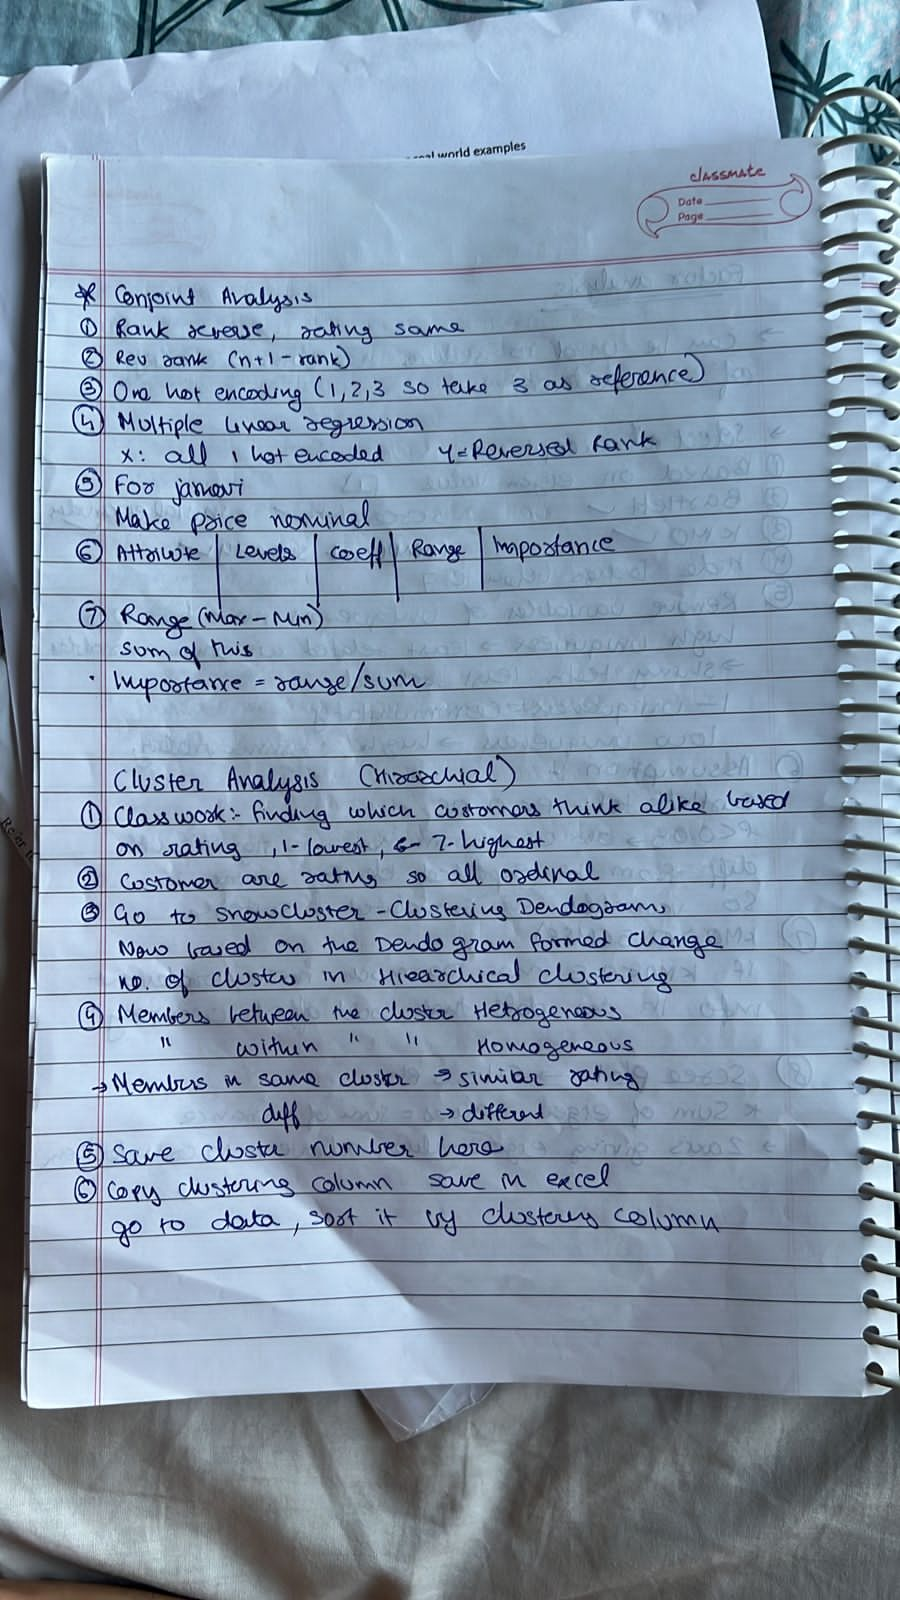 real world examples
classmate
Date
Page
* Conjoint Analysis
① Rank reverse, rating same
② Rev rank (n+1-rank)
③ One hot encoding (1,2,3 so take 3 as reference)
④ Multiple linear regression
x: all 1 hot encoded Y=Reversed Rank
⑤ For jamovi
Make price nominal
⑥ Attribute | Levels | coeff | Range | Importance
⑦ Range (Max - Min)
sum of this
· Importance = range/sum
Cluster Analysis (Hirarchial)
① Class work:- finding which customers think alike based
on rating, 1-lowest, 7-highest
② Customer are rating so all ordinal
③ Go to snowcluster - Clustering Dendogram
Now based on the Dendogram formed change
no. of cluster in Hierarchical clustering
④ Members between the cluster Hetrogeneous
" within " " Homogeneous
→ Members in same cluster → similar rating
diff → different
⑤ Save cluster number here
⑥ Copy clustering column save in excel
go to data, sort it by clustering column